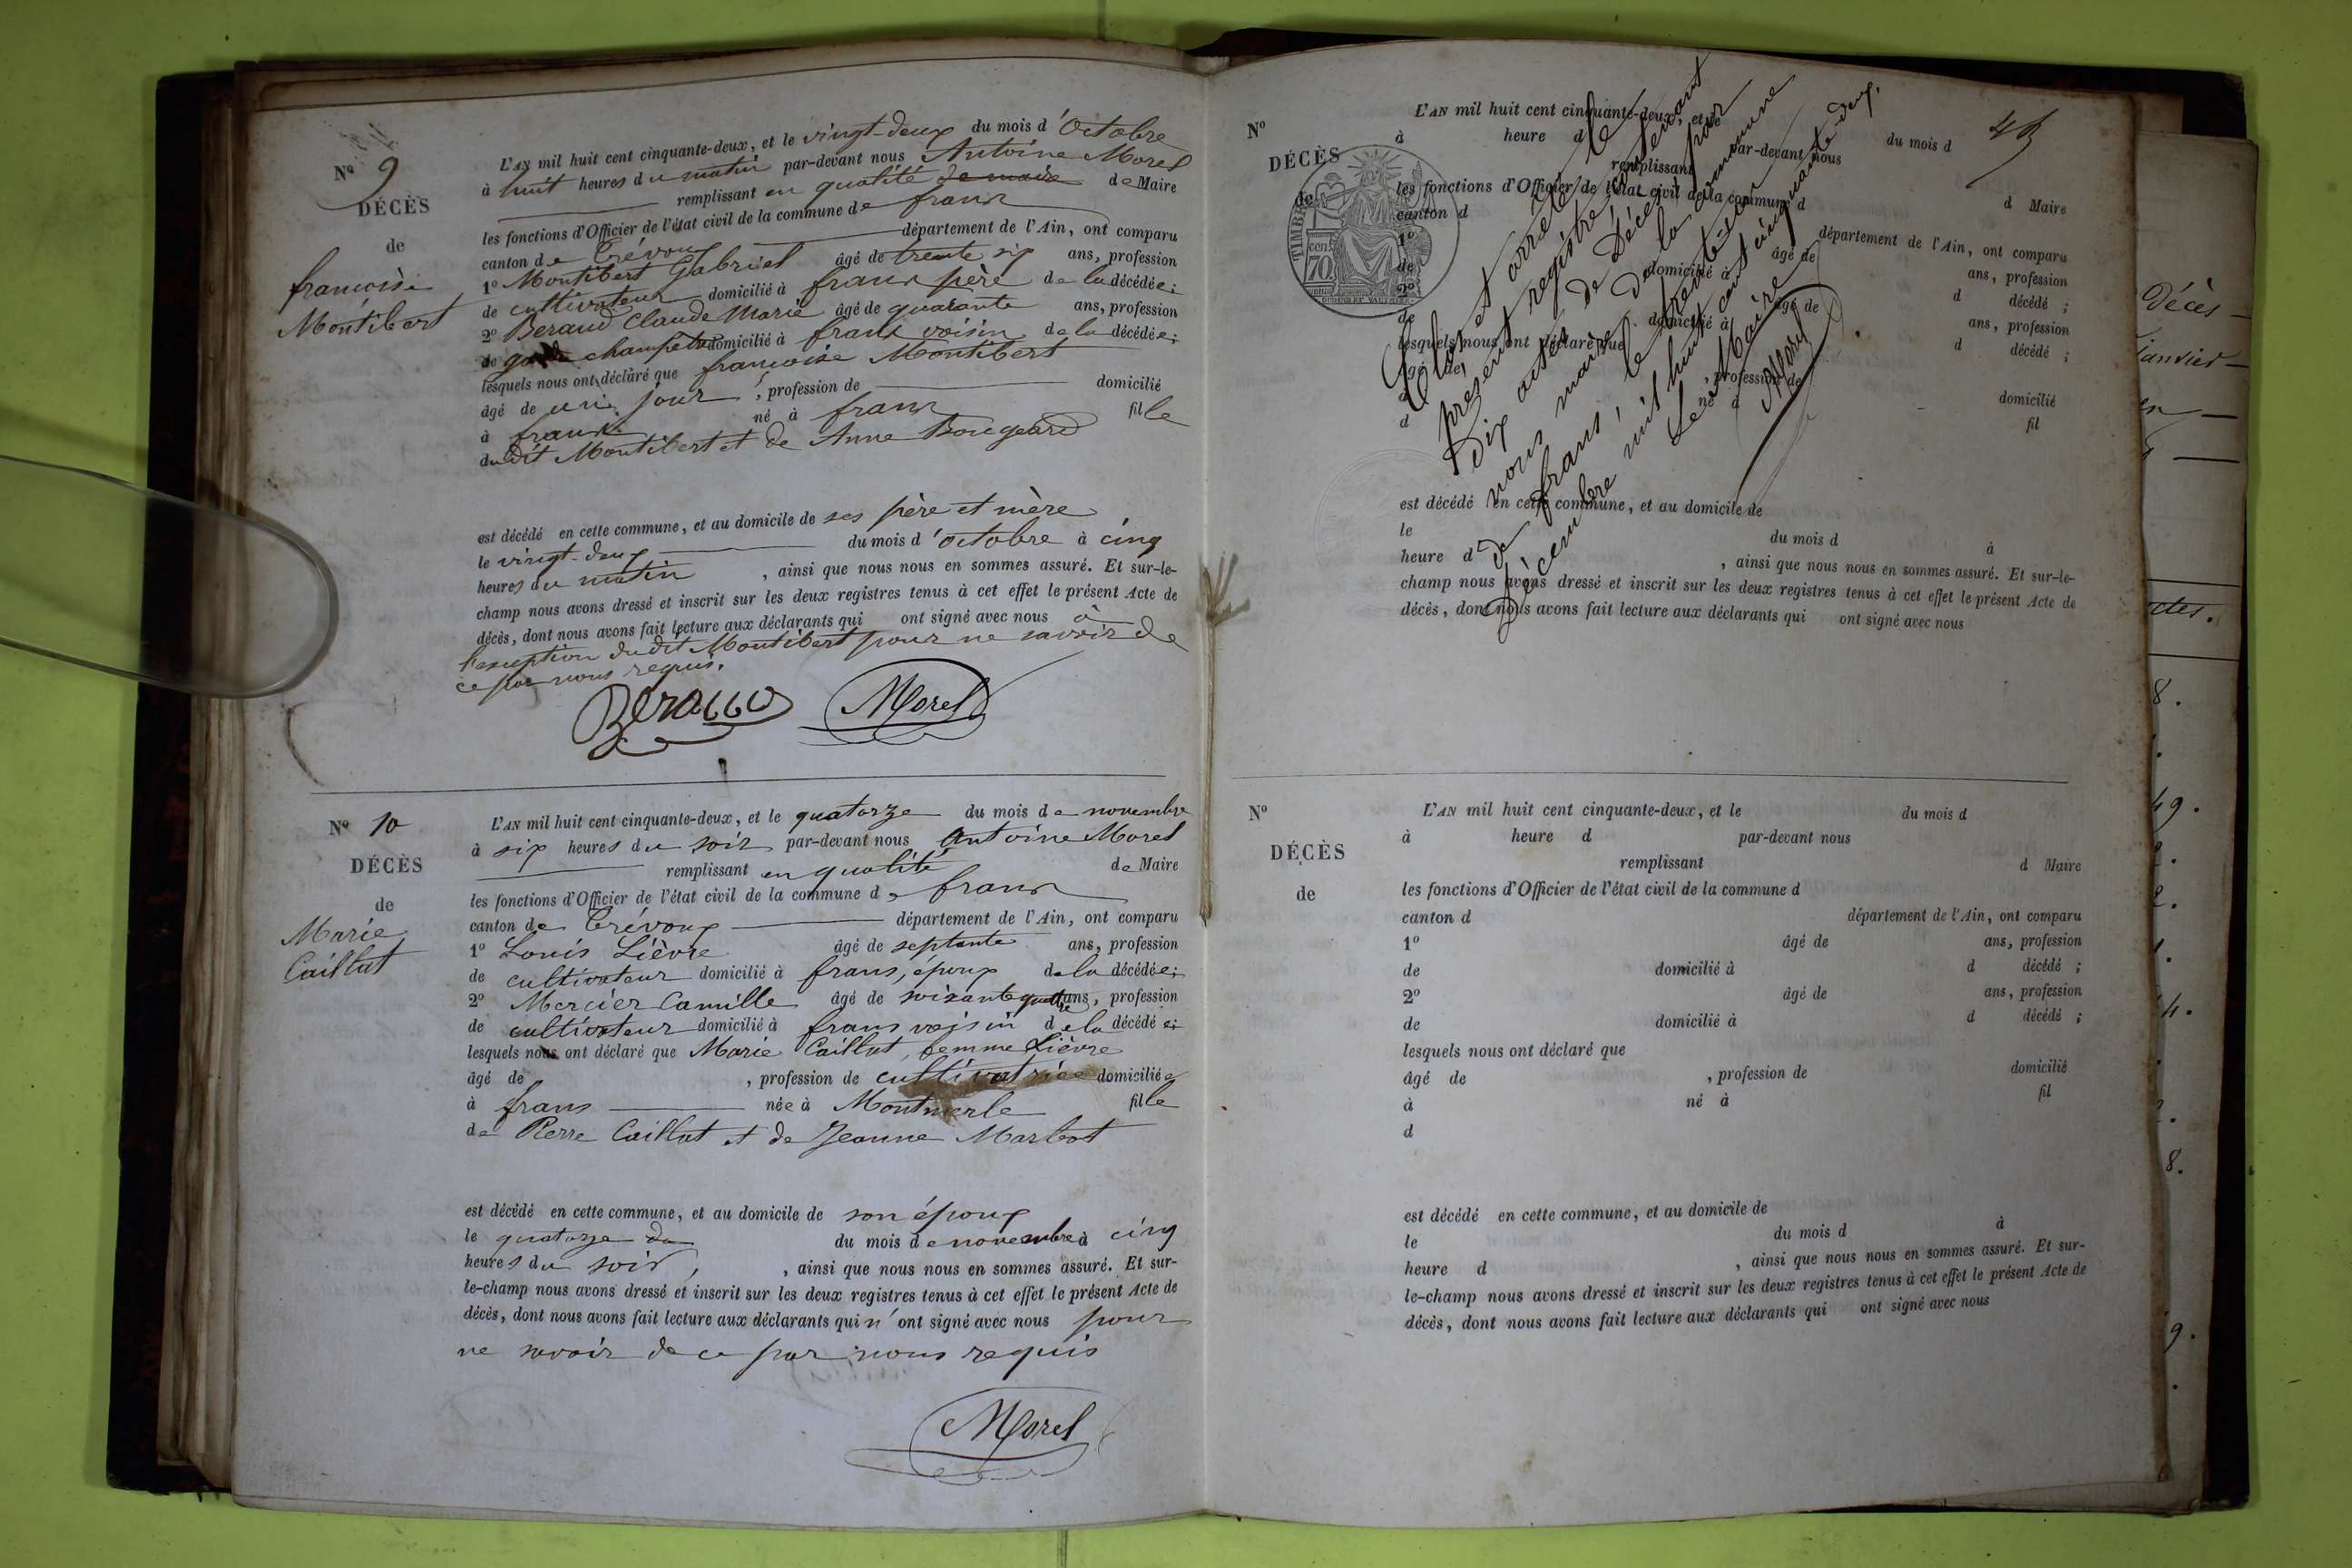 N° 9
DÉCÈS
de
françoise
Montibert
L'AN mil huit cent cinquante-deux, et le vingt-deux du mois d'Octobre
à huit heures du matin par-devant nous Antoine Morel
remplissant en qualité de maire de Maire
les fonctions d'Officier de l'état civil de la commune de frans
canton de Trévoux département de l'Ain, ont comparu
1° Montibert Gabriel âgé de trente six ans, profession
de cultivateur domicilié à frans père de la décédée;
2° Beraud Claude Marie âgé de quarante ans, profession
de garde champêtre domicilié à frans voisin de la décédée;
lesquels nous ont déclaré que françoise Montibert
âgé de un jour, profession de domicilié
à frans né à frans fille
dudit Montibert et de Anne Bougeard
est décédé en cette commune, et au domicile de ses père et mère
le vingt-deux du mois d'octobre à cinq
heures du matin, ainsi que nous nous en sommes assuré. Et sur-le-
champ nous avons dressé et inscrit sur les deux registres tenus à cet effet le présent Acte de
décès, dont nous avons fait lecture aux déclarants qui ont signé avec nous à
l'exception dudit Montibert pour ne savoir de
ce par nous requis.
Beraud Morel
N° 10
DÉCÈS
de
Marie
Caillat
L'AN mil huit cent cinquante-deux, et le quatorze du mois de novembre
à six heures du soir par-devant nous Antoine Morel
remplissant en qualité de Maire
les fonctions d'Officier de l'état civil de la commune de frans
canton de Trévoux département de l'Ain, ont comparu
1° Louis Lièvre âgé de septante ans, profession
de cultivateur domicilié à frans, époux de la décédée;
2° Mercier Camille âgé de soixante quatre ans, profession
de cultivateur domicilié à frans voisin de la décédée;
lesquels nous ont déclaré que Marie Caillat, femme Lièvre
âgé de , profession de cultivatrice domiciliée
à frans née à Montmerle fille
de Pierre Caillat et de Jeanne Marbot
est décédé en cette commune, et au domicile de son époux
le quatorze du du mois de novembre à cinq
heures du soir, , ainsi que nous nous en sommes assuré. Et sur-
le-champ nous avons dressé et inscrit sur les deux registres tenus à cet effet le présent Acte de
décès, dont nous avons fait lecture aux déclarants qui n'ont signé avec nous pour
ne savoir de ce par nous requis
Morel
N°
DÉCÈS
de
L'AN mil huit cent cinquante-deux, et le du mois d
à heure d par-devant nous
remplissant d Maire
les fonctions d'Officier de l'état civil de la commune d
canton d département de l'Ain, ont comparu
1° âgé de ans, profession
de domicilié à d décédé;
2° âgé de ans, profession
de domicilié à d décédé;
lesquels nous ont déclaré que
âgé de , profession de domicilié
à né à fil
d
est décédé en cette commune, et au domicile de
le du mois d à
heure d , ainsi que nous nous en sommes assuré. Et sur-le-
champ nous avons dressé et inscrit sur les deux registres tenus à cet effet le présent Acte de
décès, dont nous avons fait lecture aux déclarants qui ont signé avec nous
TIMBRE
70 cen
Clos et arrêté le
présent registre contenant
Dix actes de Décès, par
nous maire de la commune
de frans, le trente-un
Décembre mil huit cent cinquante-deux.
Le Maire
Morel
N°
DÉCÈS
de
L'AN mil huit cent cinquante-deux, et le du mois d
à heure d par-devant nous
remplissant d Maire
les fonctions d'Officier de l'état civil de la commune d
canton d département de l'Ain, ont comparu
1° âgé de ans, profession
de domicilié à d décédé;
2° âgé de ans, profession
de domicilié à d décédé;
lesquels nous ont déclaré que
âgé de , profession de domicilié
à né à fil
d
est décédé en cette commune, et au domicile de
le du mois d à
heure d , ainsi que nous nous en sommes assuré. Et sur-
le-champ nous avons dressé et inscrit sur les deux registres tenus à cet effet le présent Acte de
décès, dont nous avons fait lecture aux déclarants qui ont signé avec nous
Décès
janvier